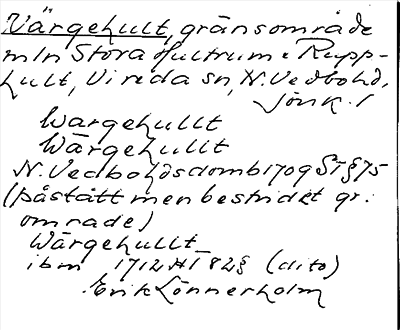 Värgehult, gränsområde
mln Stora Hultrum o. Rupp-
hult, Vireda sn, N. Vedbohd,
Jönk. l
Wargehullt
Wärgehullt
N. Vedbohdsdomb 1709 ST § 75
(påstått men bestridet gr.
område)
Wärgehullt
ibm 1712 HT 82§ (dito)
Erik Lönnerholm